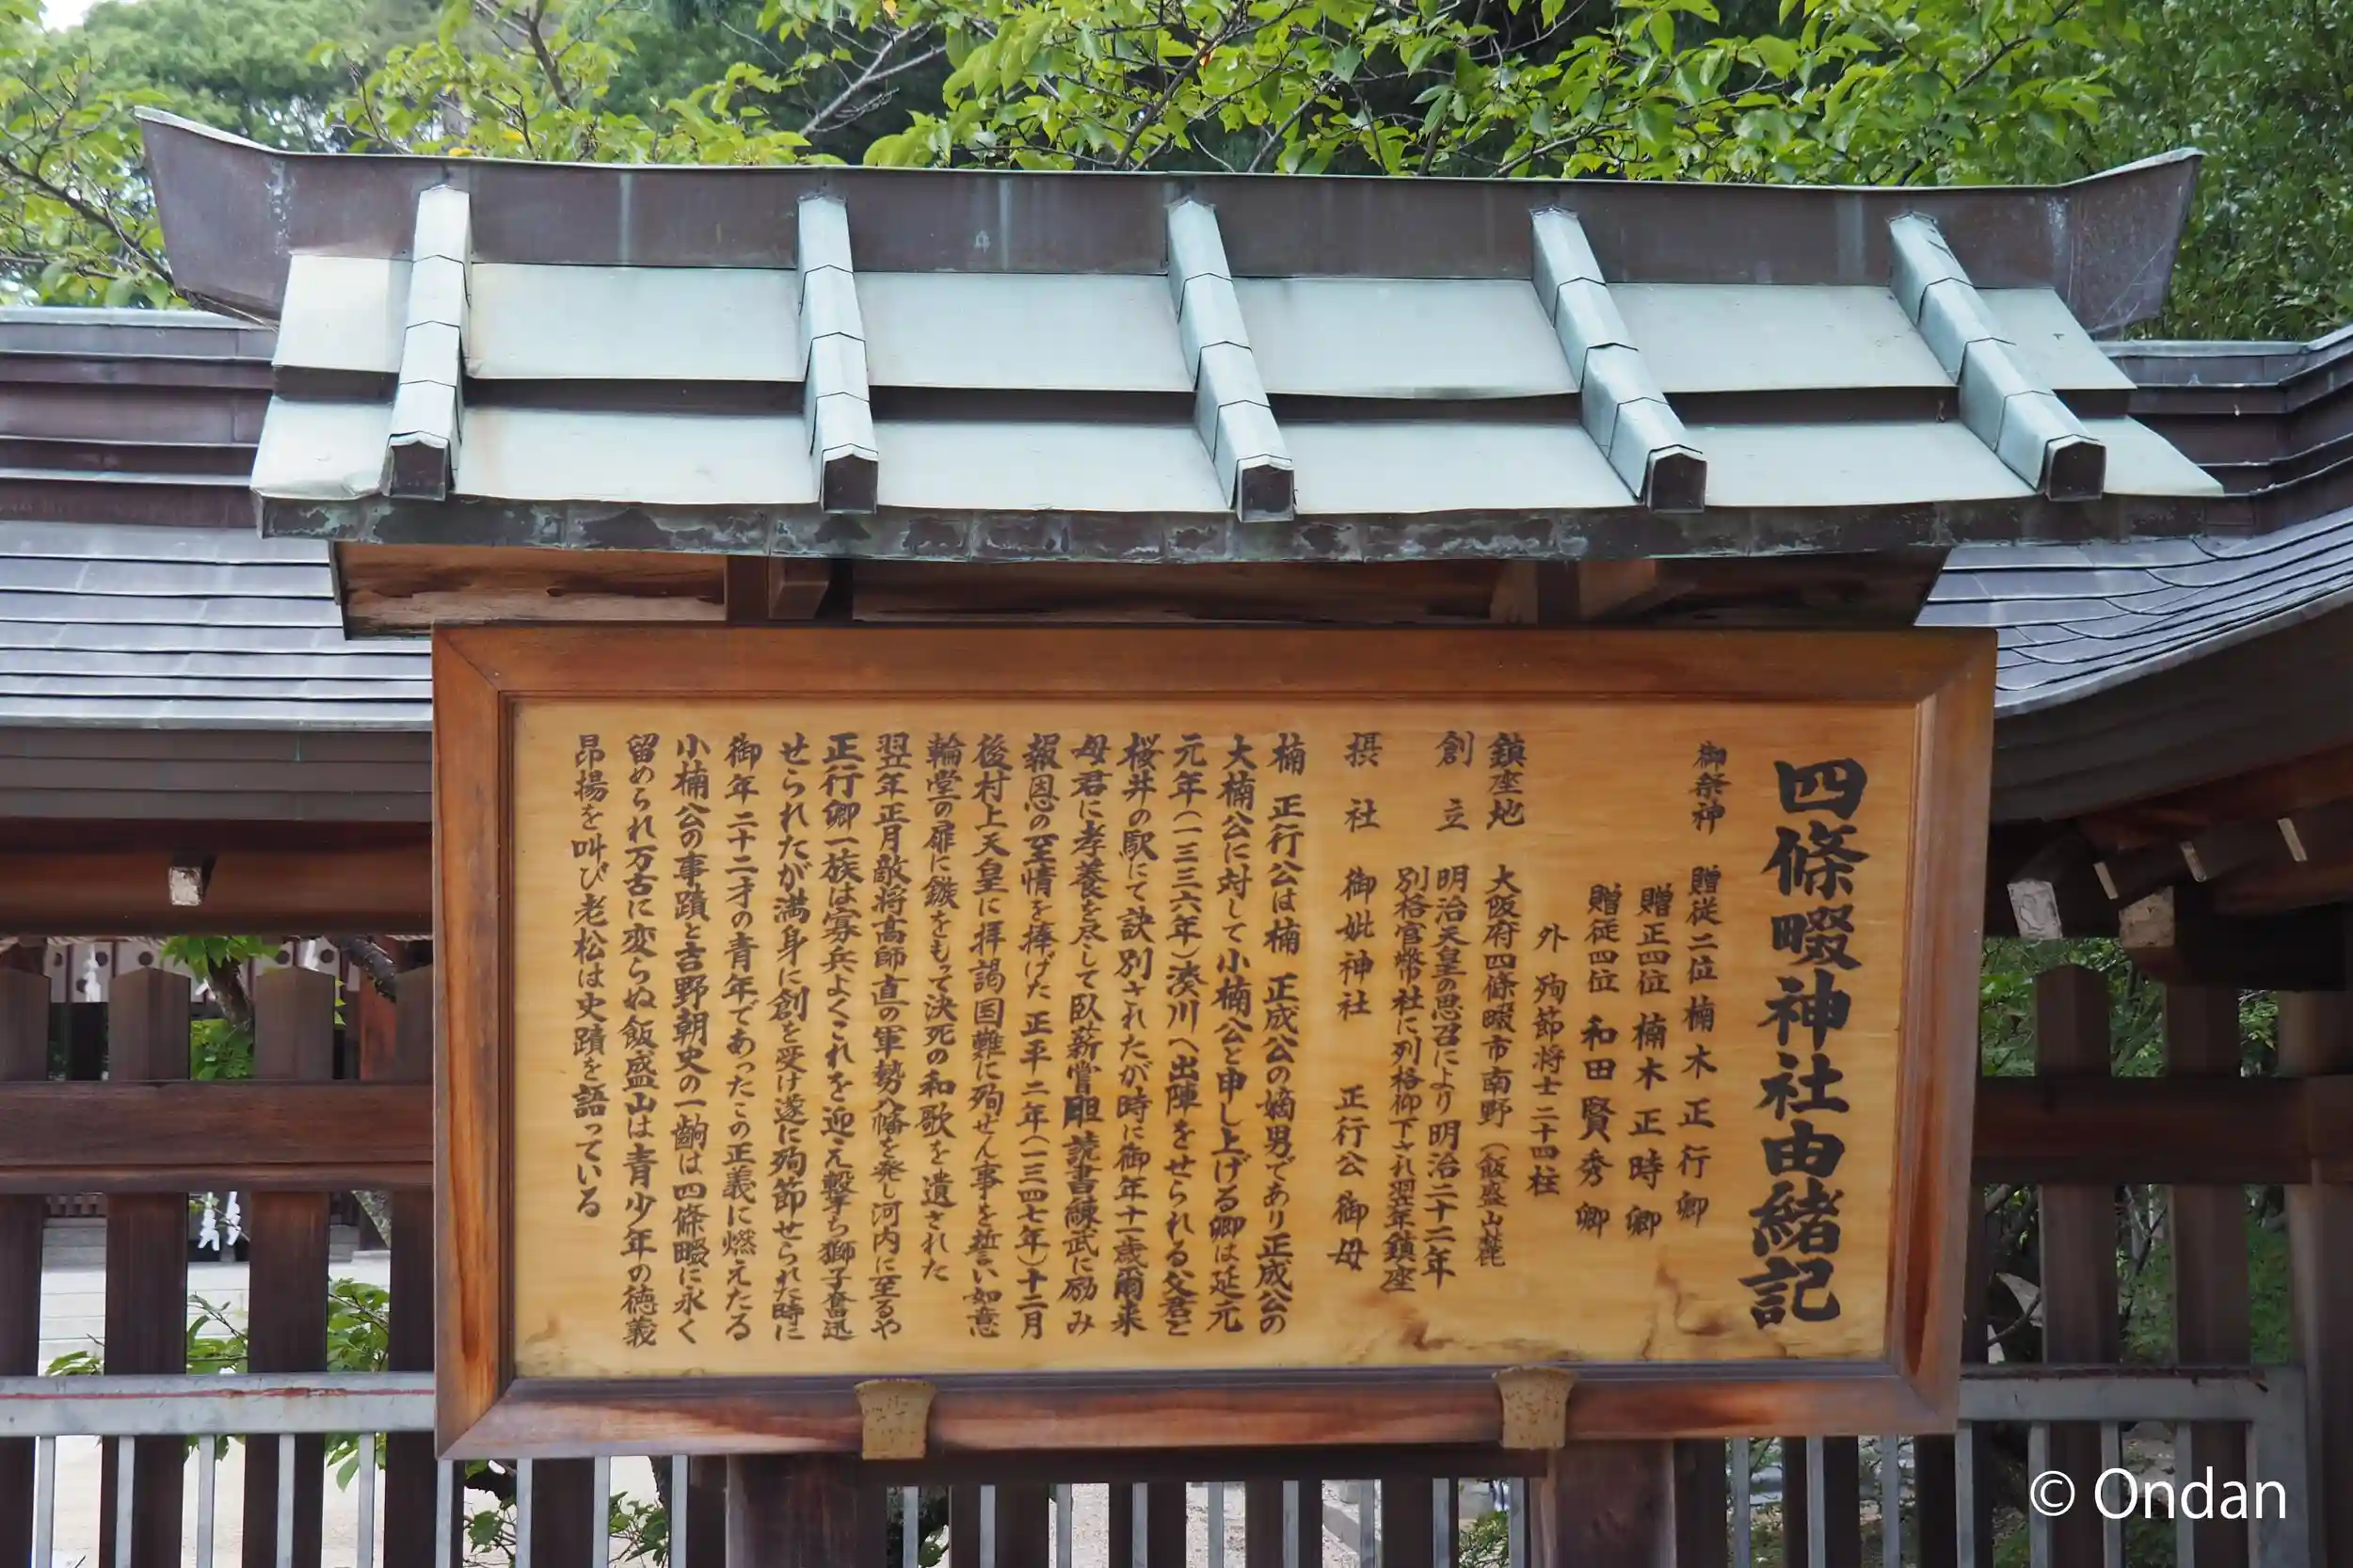 四條畷神社由緒記
御祭神 贈従二位 楠木正行卿
贈正四位 楠木正時卿
贈従四位 和田賢秀卿
外 殉節将士二十四柱
鎮座地 大阪府四條畷市南野(飯盛山麓)
創立 明治天皇の思召により明治二十二年
別格官幣社に列格仰下され翌年鎮座
摂社 御妣神社 正行公御母
楠 正行公は楠 正成公の嫡男であり正成公の
大楠公に対して小楠公と申し上げる卿は延元
元年(一三三六年)湊川へ出陣をせられる父君と
桜井の駅にて訣別されたが時に御年十一歳爾来
母君に孝養を尽して臥薪嘗胆読書練武に励み
報恩の至情を捧げた 正平二年(一三四七年)十二月
後村上天皇に拝謁国難に殉ぜん事を誓い如意
輪堂の扉に鏃をもって決死の和歌を遺された
翌年正月敵将高師直の軍勢八幡を発し河内に至るや
正行卿一族は寡兵よくこれを迎え撃ち獅子奮迅
せられたが満身に創を受け遂に殉節せられた時に
御年二十二才の青年であったこの正義に燃えたる
小楠公の事蹟と吉野朝史の一齣は四條畷に永く
留められ万古に変らぬ飯盛山は青少年の徳義
昂揚を叫び老松は史蹟を語っている
© Ondan